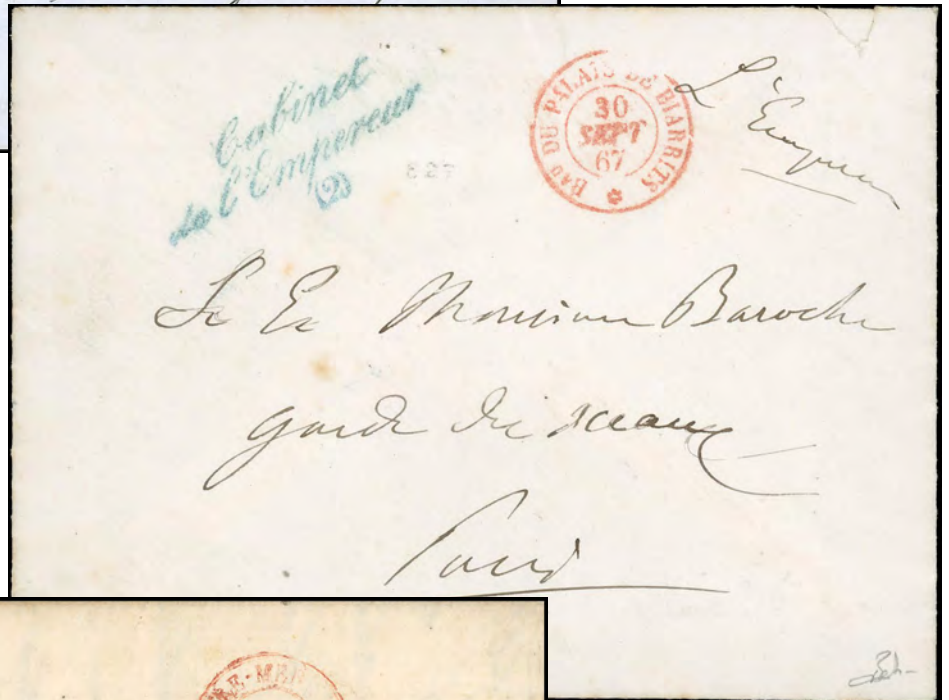 Cabinet
de l'Empereur
BAU DU PALAIS DE BIARRITS
30
SEPT
67
L'Empereur
Monsieur Baroche
garde des sceaux
Paris